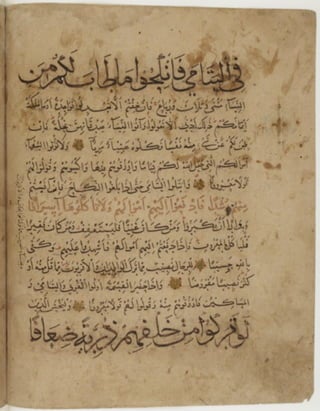 في اليتامى فانكحوا ما طاب لكم من
النساء مثنى وثلاث ورباع فان خفتم الا تعدلوا فواحدة او ما ملكت
ايمانكم ذلك ادنى الا تعولوا وآتوا النساء صدقاتهن نحلة فان
طبن لكم عن شيء منه نفسا فكلوه هنيئا مريئا ولا تؤتوا السفهاء
اموالكم التي جعل الله لكم قياما وارزقوهم فيها واكسوهم وقولوا لهم
قولا معروفا وابتلوا اليتامى حتى اذا بلغوا النكاح فان آنستم
منهم رشدا فادفعوا اليهم اموالهم ولا تأكلوها اسرافا
وبدارا ان يكبروا ومن كان غنيا فليستعفف ومن كان فقيرا
فليأكل بالمعروف فاذا دفعتم اليهم اموالهم فاشهدوا عليهم وكفى
بالله حسيبا للرجال نصيب مما ترك الوالدان والاقربون مما قل منه او
كثر نصيبا مفروضا واذا حضر القسمة اولوا القربى واليتامى و
المساكين فارزقوهم منه وقولوا لهم قولا معروفا وليخش الذين
لو تركوا من خلفهم ذرية ضعافا